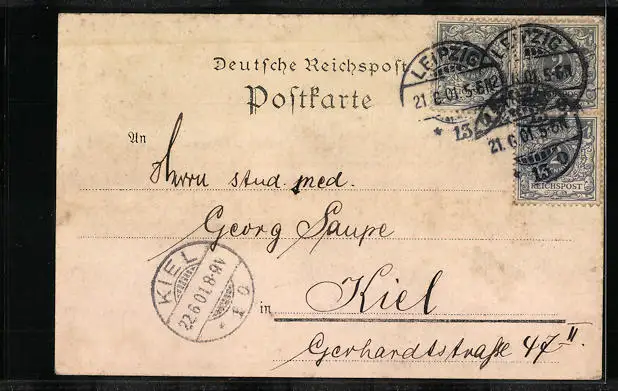 Deutsche Reichspost
Postkarte
An
Herrn stud. med.
Georg Saupe
in Kiel
Gerhardtstraße 47 II
LEIPZIG
21.6.01.5-6N
* 13
LEIPZIG
01.5-6N
21.6.01.5-6N
* 13 o
REICHSPOST
KIEL
22.6.01.8-9V
* 1 o